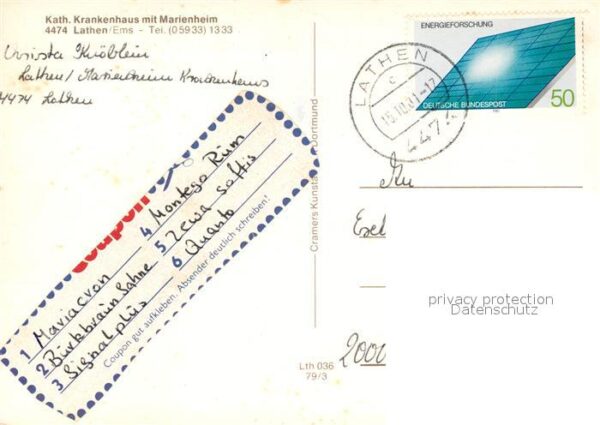 Kath. Krankenhaus mit Marienheim
4474 Lathen/Ems - Tel. (0 59 33) 13 33
Lathen/Marienheim Krankenhaus
4474 Lathen
coupon
1 Mariacron
2 Bärkbraun Sahne
3 Signal plus
4 Montego Rum
5 Zewa softis
6 Quanto
Coupon gut aufkleben. Absender deutlich schreiben!
Cramers Kunstanstalt Dortmund
Lth 036
79/3
ENERGIEFORSCHUNG
DEUTSCHE BUNDESPOST
50
LATHEN
c
15.10.81-17
4474
An
privacy protection
Datenschutz
2000